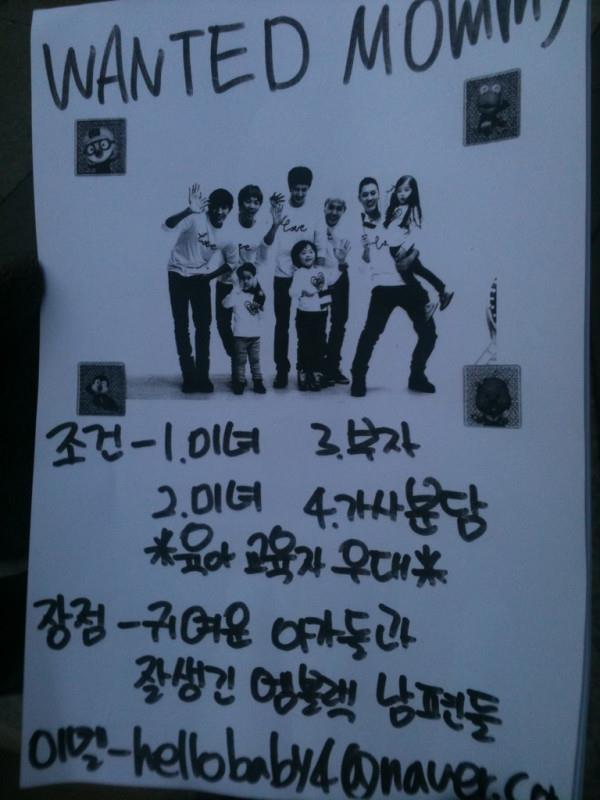 WANTED MOMMY
조건-1.미녀 3.부자
2.미녀 4.가사분담
*육아 교육자 우대*
장점-귀여운 아가들과
잘생긴 엠블랙 남편들
이멜-hellobaby4@naver.co